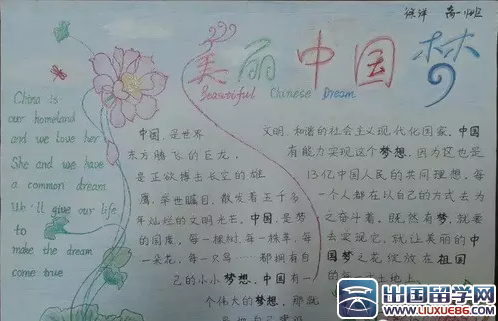 美丽中国梦
Beautiful Chinese Dream
China is
our homeland
and we love her
She and we have
a common dream
We'll give our life
to
make the dream
come true
中国,是世界
东方腾飞的巨龙,
是正欲搏击长空的雄
鹰,举世瞩目,散发着五千多
年灿烂的文明光芒,中国,是梦
的国度,每一棵树,每一株草,每
一朵花,每一只鸟……都拥有自
己的小小梦想,中国有一
个伟大的梦想,那就
文明,和谐的社会主义现代化国家,中国
有能力实现这个梦想,因为这也是
13亿中国人民的共同理想,每
一个人都在以自己的方式去为
之奋斗着,既然有梦,就要
去实现它,就让美丽的中
国梦之花绽放在祖国
出国留学网
www.liuxue86.com